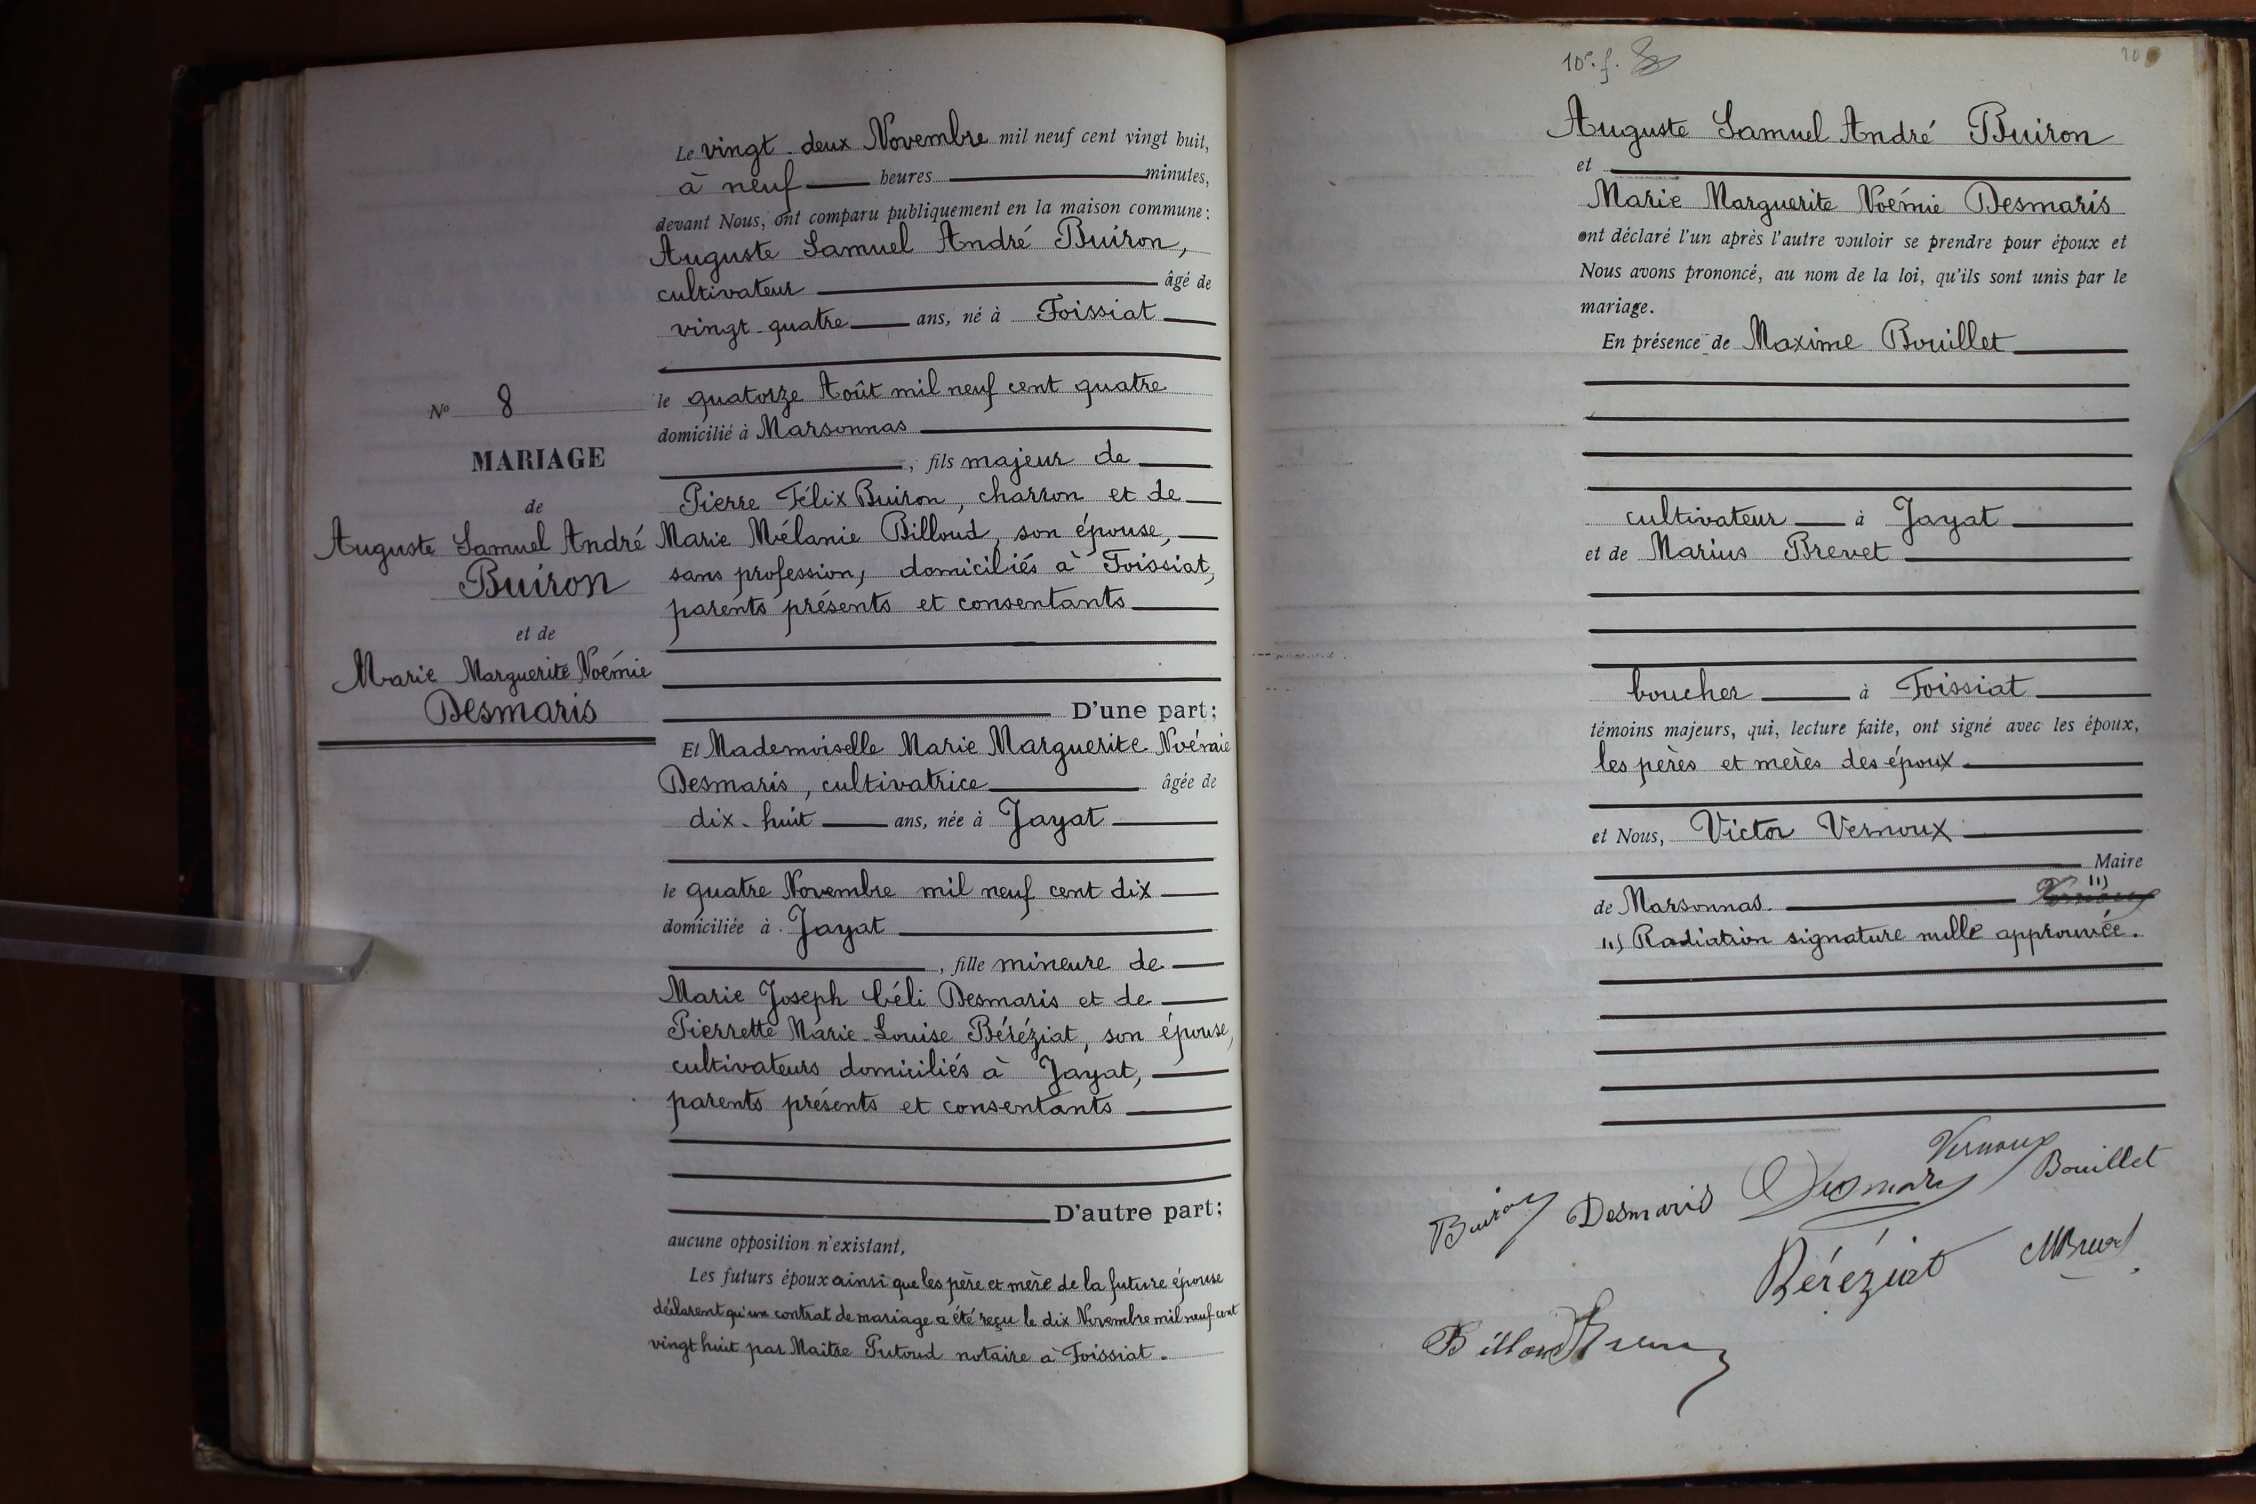 Le vingt-deux Novembre mil neuf cent vingt huit,
à neuf heures minutes,
devant Nous, ont comparu publiquement en la maison commune:
Auguste Samuel André Buiron,
cultivateur âgé de
vingt-quatre ans, né à Foissiat
le quatorze Août mil neuf cent quatre
domicilié à Marsonnas
, fils majeur de
Pierre Félix Buiron, charron et de
Marie Mélanie Billoud, son épouse,
sans profession, domiciliés à Foissiat,
parents présents et consentants
D'une part;
Et Mademoiselle Marie Marguerite Noémie
Desmaris, cultivatrice âgée de
dix-huit ans, née à Jayat
le quatre Novembre mil neuf cent dix
domiciliée à Jayat
, fille mineure de
Marie Joseph Céli Desmaris et de
Pierrette Marie-Louise Béréziat, son épouse,
cultivateurs domiciliés à Jayat,
parents présents et consentants
D'autre part;
aucune opposition n'existant,
Les futurs époux ainsi que les père et mère de la future épouse
déclarent qu'un contrat de mariage a été reçu le dix Novembre mil neuf cent
vingt huit par Maître Putoud notaire à Foissiat.
No 8
MARIAGE
de
Auguste Samuel André
Buiron
et de
Marie Marguerite Noémie
Desmaris
10e. f.
20
Auguste Samuel André Buiron
et
Marie Marguerite Noémie Desmaris
ont déclaré l'un après l'autre vouloir se prendre pour époux et
Nous avons prononcé, au nom de la loi, qu'ils sont unis par le
mariage.
En présence de Maxime Bouillet
cultivateur à Jayat
et de Marius Brevet
boucher à Foissiat
témoins majeurs, qui, lecture faite, ont signé avec les époux,
les pères et mères des époux
et Nous, Victor Vernoux
Maire
de Marsonnas. Vernoux (1)
(1) Radiation signature nulle approuvée.
Vernoux
Buiron Desmaris Desmaris Bouillet
Béréziat MBrevet
Billoud Buiron